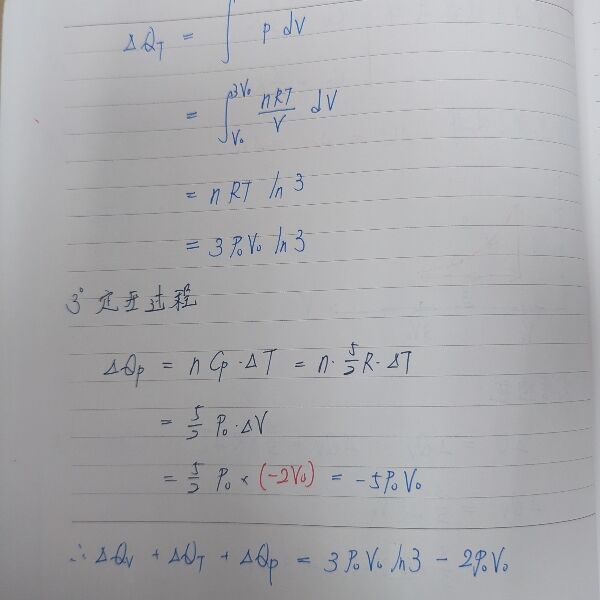 ΔQ_T = ∫ p dV
= ∫_{V₀}^{3V₀} nRT/V dV
= nRT ln 3
= 3P₀V₀ ln 3
3° 定圧過程
ΔQp = n Cp・ΔT = n・5/2 R・ΔT
= 5/2 P₀・ΔV
= 5/2 P₀ × (-2V₀) = -5P₀V₀
∴ ΔQ_V + ΔQ_T + ΔQp = 3P₀V₀ ln 3 - 2P₀V₀